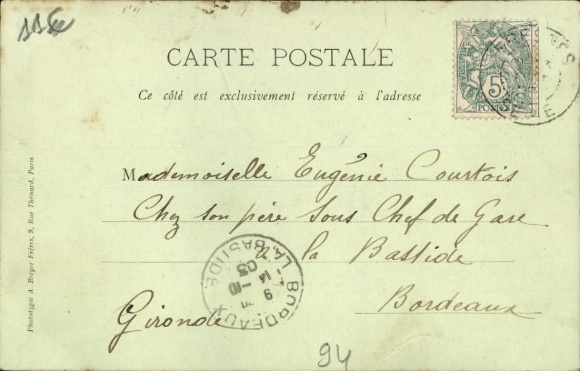 11€
CARTE POSTALE
Ce côté est exclusivement réservé à l'adresse
5c
POSTES
Mademoiselle Eugénie Courtois
Chez son père Sous Chef de Gare
à la Bastide
Bordeaux
Gironde
BORDEAUX
LA BASTIDE
9
14 -10
03
94
Phototypie A. Berger Frères, 9, Rue Thénard, Paris